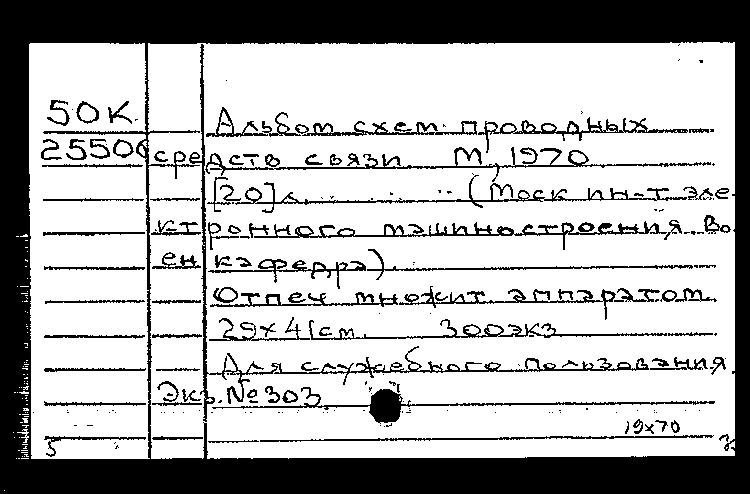 50К. Альбом схем проводных
25500 средств связи. М, 1970
[20]л. (Моск ин-т эле-
ктронного машиностроения. Во
ен кафедра).
Отпеч множит аппаратом
29х41см. 300экз
Для служебного пользования.
Экз. №303
19х70
5